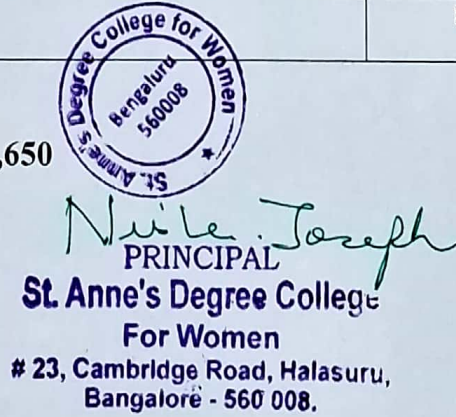 St. Anne's Degree College for Women
Bengaluru
560008
,650
Joseph
PRINCIPAL
St. Anne's Degree College
For Women
# 23, Cambridge Road, Halasuru,
Bangalore - 560 008.